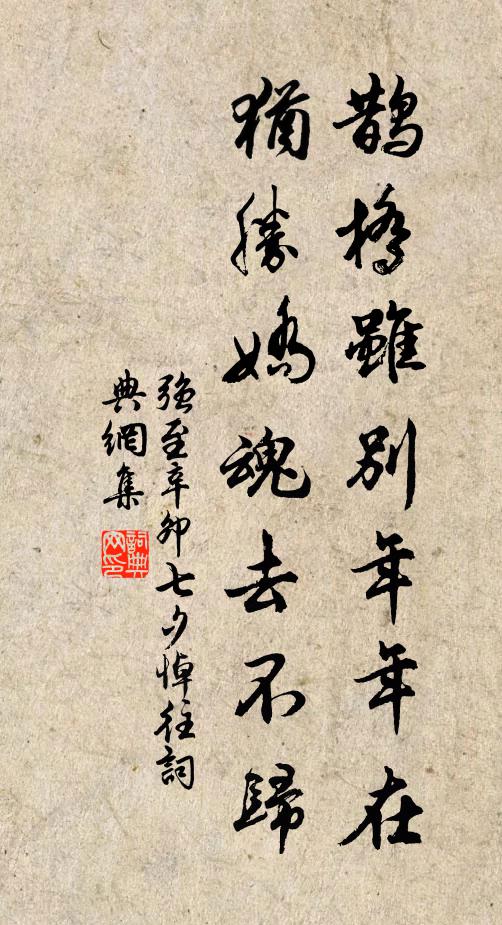 鵲橋雖別年年在
猶勝嬌魂去不歸
強至辛卯七夕悼往詞
典網集
詞典網印